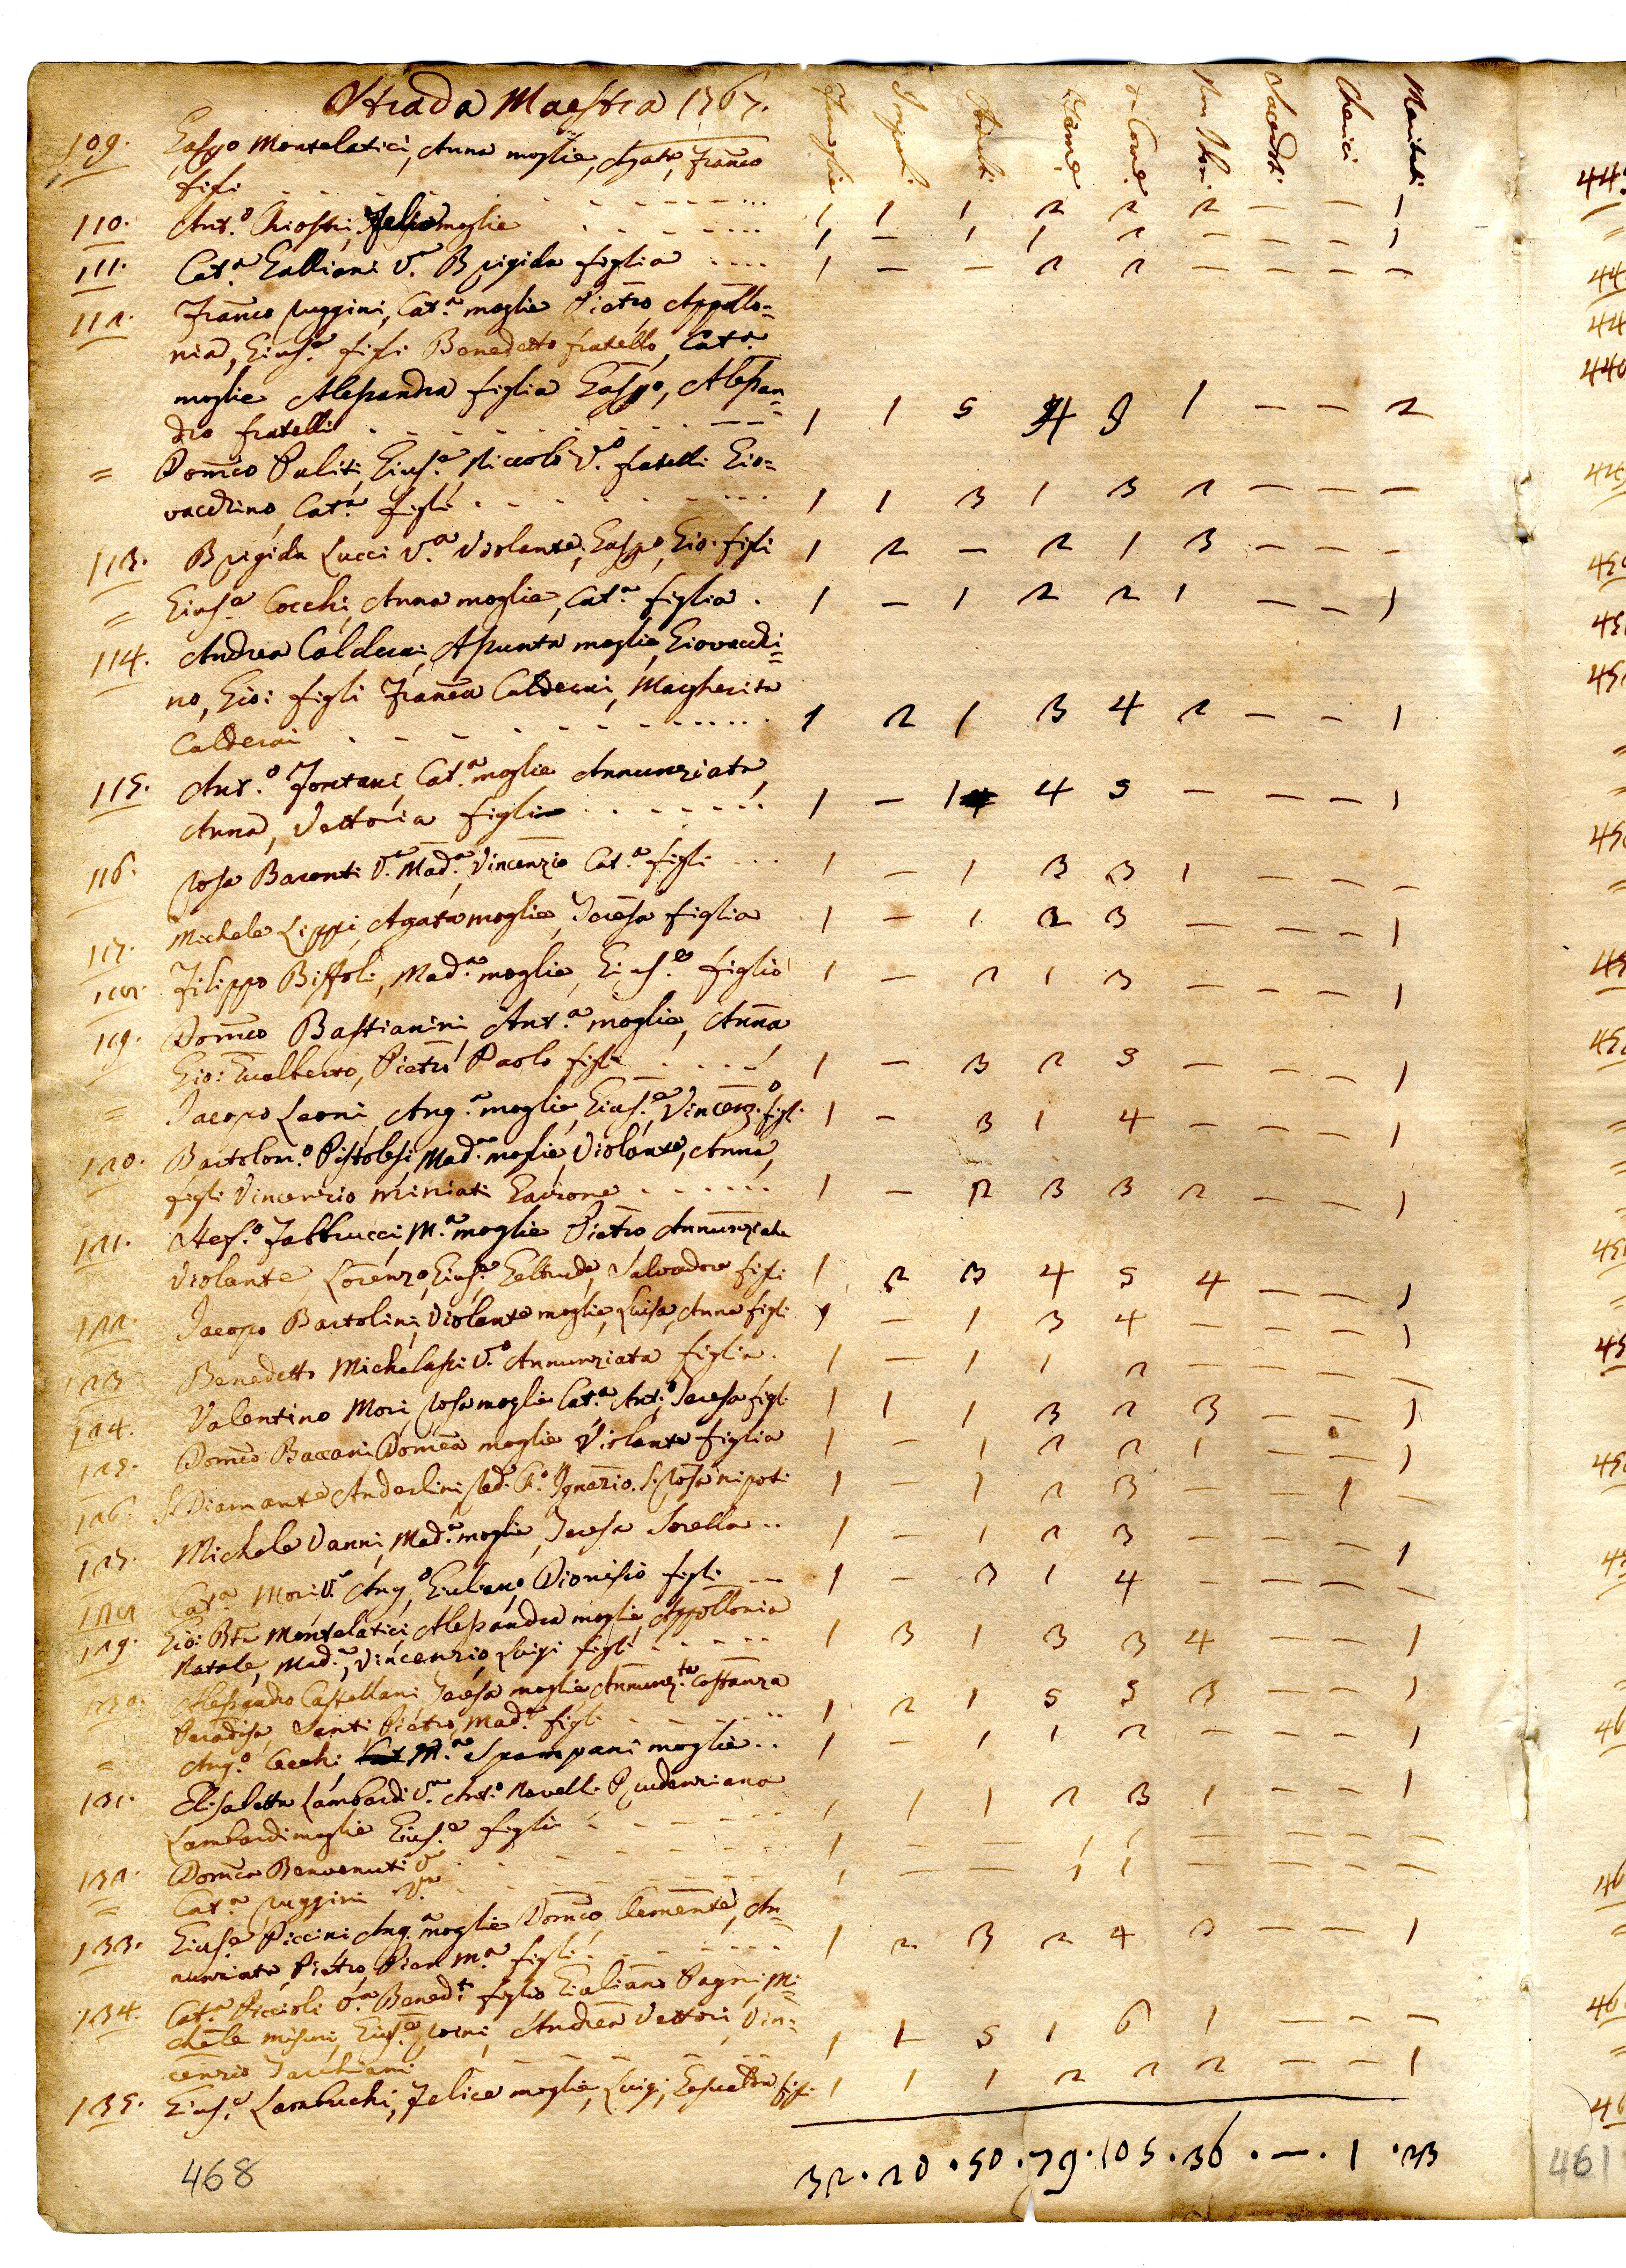 Strada Maestra 1767.
Famiglie Angeli Maschi Femine da Com.e Non Com. Sacerdoti Cherici Maritati
109. Gaspo Montelatici, Anna moglie, Agata, Franco
figli 1 1 1 2 2 2 — — 1
110. Ant.o Chiostri, moglie 1 — 1 1 2 — — — 1
111. Cat.a Galliani V.a Brigida figlia 1 — — 2 2 — — — —
112. Franco Ruggini, Cat.a moglie Pietro, Appollo=
nia, Gius.e figli Benedetto fratello, Cat.a
moglie Alessandra figlia Gaspo, Alessan=
dro fratelli 1 1 5 4 9 1 — — 2
= Domco Puliti, Gius.e, Niccolò V.o fratelli Gio=
vacchino, Cat.a figli 1 1 3 1 3 2 — — —
113. Brigida Lucci V.a Violante, Gaspo, Gio: figli 1 2 — 2 1 3 — — —
= Gius.e Cocchi, Anna moglie, Cat.a figlia 1 — 1 2 2 1 — — 1
114. Andrea Calderai, Assunta moglie, Giovacchi=
no, Gio: figli Franca Calderai, Margherita
Calderai 1 2 1 3 4 2 — — 1
115. Ant.o Fontani, Cat.a moglie Annunziata,
Anna, Vettoria figlie 1 — 1 4 5 — — — 1
116. Rosa Baronti V.a Mad.a, Vincenzio Cat.a figli 1 — 1 3 3 1 — — —
117. Michele Lippi, Agata moglie, Teresa figlia 1 — 1 2 3 — — — 1
118. Filippo Biffoli, Mad.a moglie, Gius.e figlio 1 — 2 1 3 — — — 1
119. Domco Bastianini, Ant.a moglie, Anna
Gio: Gualberto, Pietro Paolo figli 1 — 3 2 5 — — — 1
= Jacopo Leoni, Ang.a moglie, Gius.e, Vincenz.o figli 1 — 3 1 4 — — — 1
120. Bartolom.o Pistolesi, Mad.a moglie, Violante, Anna,
figli Vincenzio Miniati Garzone 1 — 2 3 3 2 — — 1
121. Stef.o Fabbrucci, M.a moglie Pietro, Annunziata
Violante Lorenzo, Gius.e, Geltrude, Salvadore figli 1 2 3 4 5 4 — — 1
122. Jacopo Bartolini, Violante moglie, Luisa, Anna figli 1 — 1 3 4 — — — 1
123. Benedetto Michelassi V.o Annunziata figlia 1 — 1 1 2 — — — —
124. Valentino Mori, Rosa moglie Cat.a Ant.o, Teresa figli 1 1 1 3 2 3 — — 1
125. Domco Baccani Domca moglie Violante figlia 1 — 1 2 2 1 — — 1
126. S. Diamante Anderlini Ignazio. S. Rosa nipoti 1 — 1 2 3 — — 1 —
127. Michele Vanni, Mad.a moglie, Teresa Sorella 1 — 1 2 3 — — — 1
128. Cat.a Mori V.a Ang.o, Giuliano, Dionisio figli 1 — 3 1 4 — — — —
129. Gio: Bta Montelatici, Alessandra moglie, Appollonia
Natale, Mad.a, Vincenzio, Luigi figli 1 3 1 3 3 4 — — 1
130. Alessandro Castellani Teresa moglie Annunz.ta Costanza
Paradisa, Santi Pietro, Mad.a figli 1 2 1 5 5 3 — — 1
= Ang.o Cecchi, M.a Spampani moglie 1 — 1 1 2 — — — 1
131. Elisabetta Lambardi V.a Ant.o Novelli Prudenziana
Lambardi moglie Gius.e figli 1 1 1 2 3 1 — — 1
132. Domca Benvenuti V.a 1 — — 1 1 — — — —
= Cat.a Ruggini V.a 1 — — 1 1 — — — —
133. Gius.e Piccini Ang.a moglie Domco, Clemente, An=
nunziata, Pietro, Pier M.a figli 1 2 3 2 4 3 — — 1
134. Cat.a Piccioli V.a Bened.o figlio Giuliano Pagni, Mi=
chele Misuri, Gius.e, Andrea Vettori, Vin=
cenzio Facchiani 1 1 5 1 6 1 — — —
135. Gius.e Lambuchi, Felice moglie, Luigi, figli 1 1 1 2 2 2 — — 1
32 . 20 . 50 . 79 . 105 . 36 . — . 1 . 23
468
461